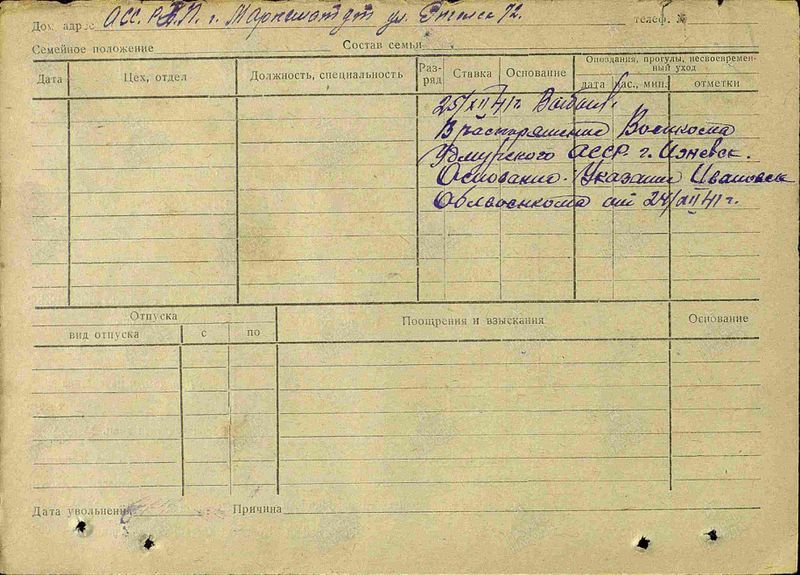 Дом. адрес АСС. Р.Н.П. г. Марксштадт ул. Энгельс 72. телеф. №
Семейное положение Состав семьи
Дата Цех, отдел Должность, специальность Раз-ряд Ставка Основание Опоздания, прогулы, несвоевремен-ный уход
дата час., мин. отметки
25/XII 41 г. Выбыл.
В распоряжение Военкома
Удмурского АССР. г. Ижевск.
Основание: Указание Ивановск
Облвоенкома от 24/XII 41 г.
Отпуска Поощрения и взыскания Основание
вид отпуска с по
Дата увольнения Причина